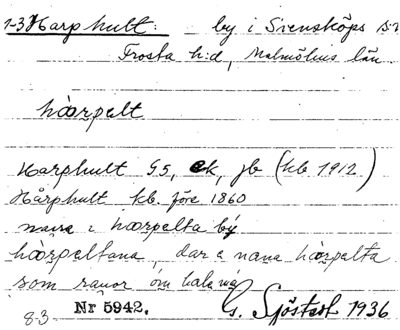 1-3 Harphult: by i Svensköps s:n
Frosta h:d, Malmöhus län
hàrpelt
Harphult G5, ek, jb (kb 1912)
Hårphult kb. före 1860
i harpelta by
harpeltana, dar e nana harpelta
som
8-3 Nr 5942. G. Sjöstedt 1936